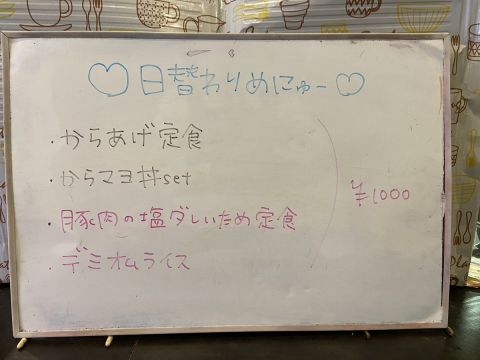 ♡日替わりめにゅー♡
・からあげ定食
・からマヨ丼set
・豚肉の塩ダレいため定食
・デミオムライス
¥1000